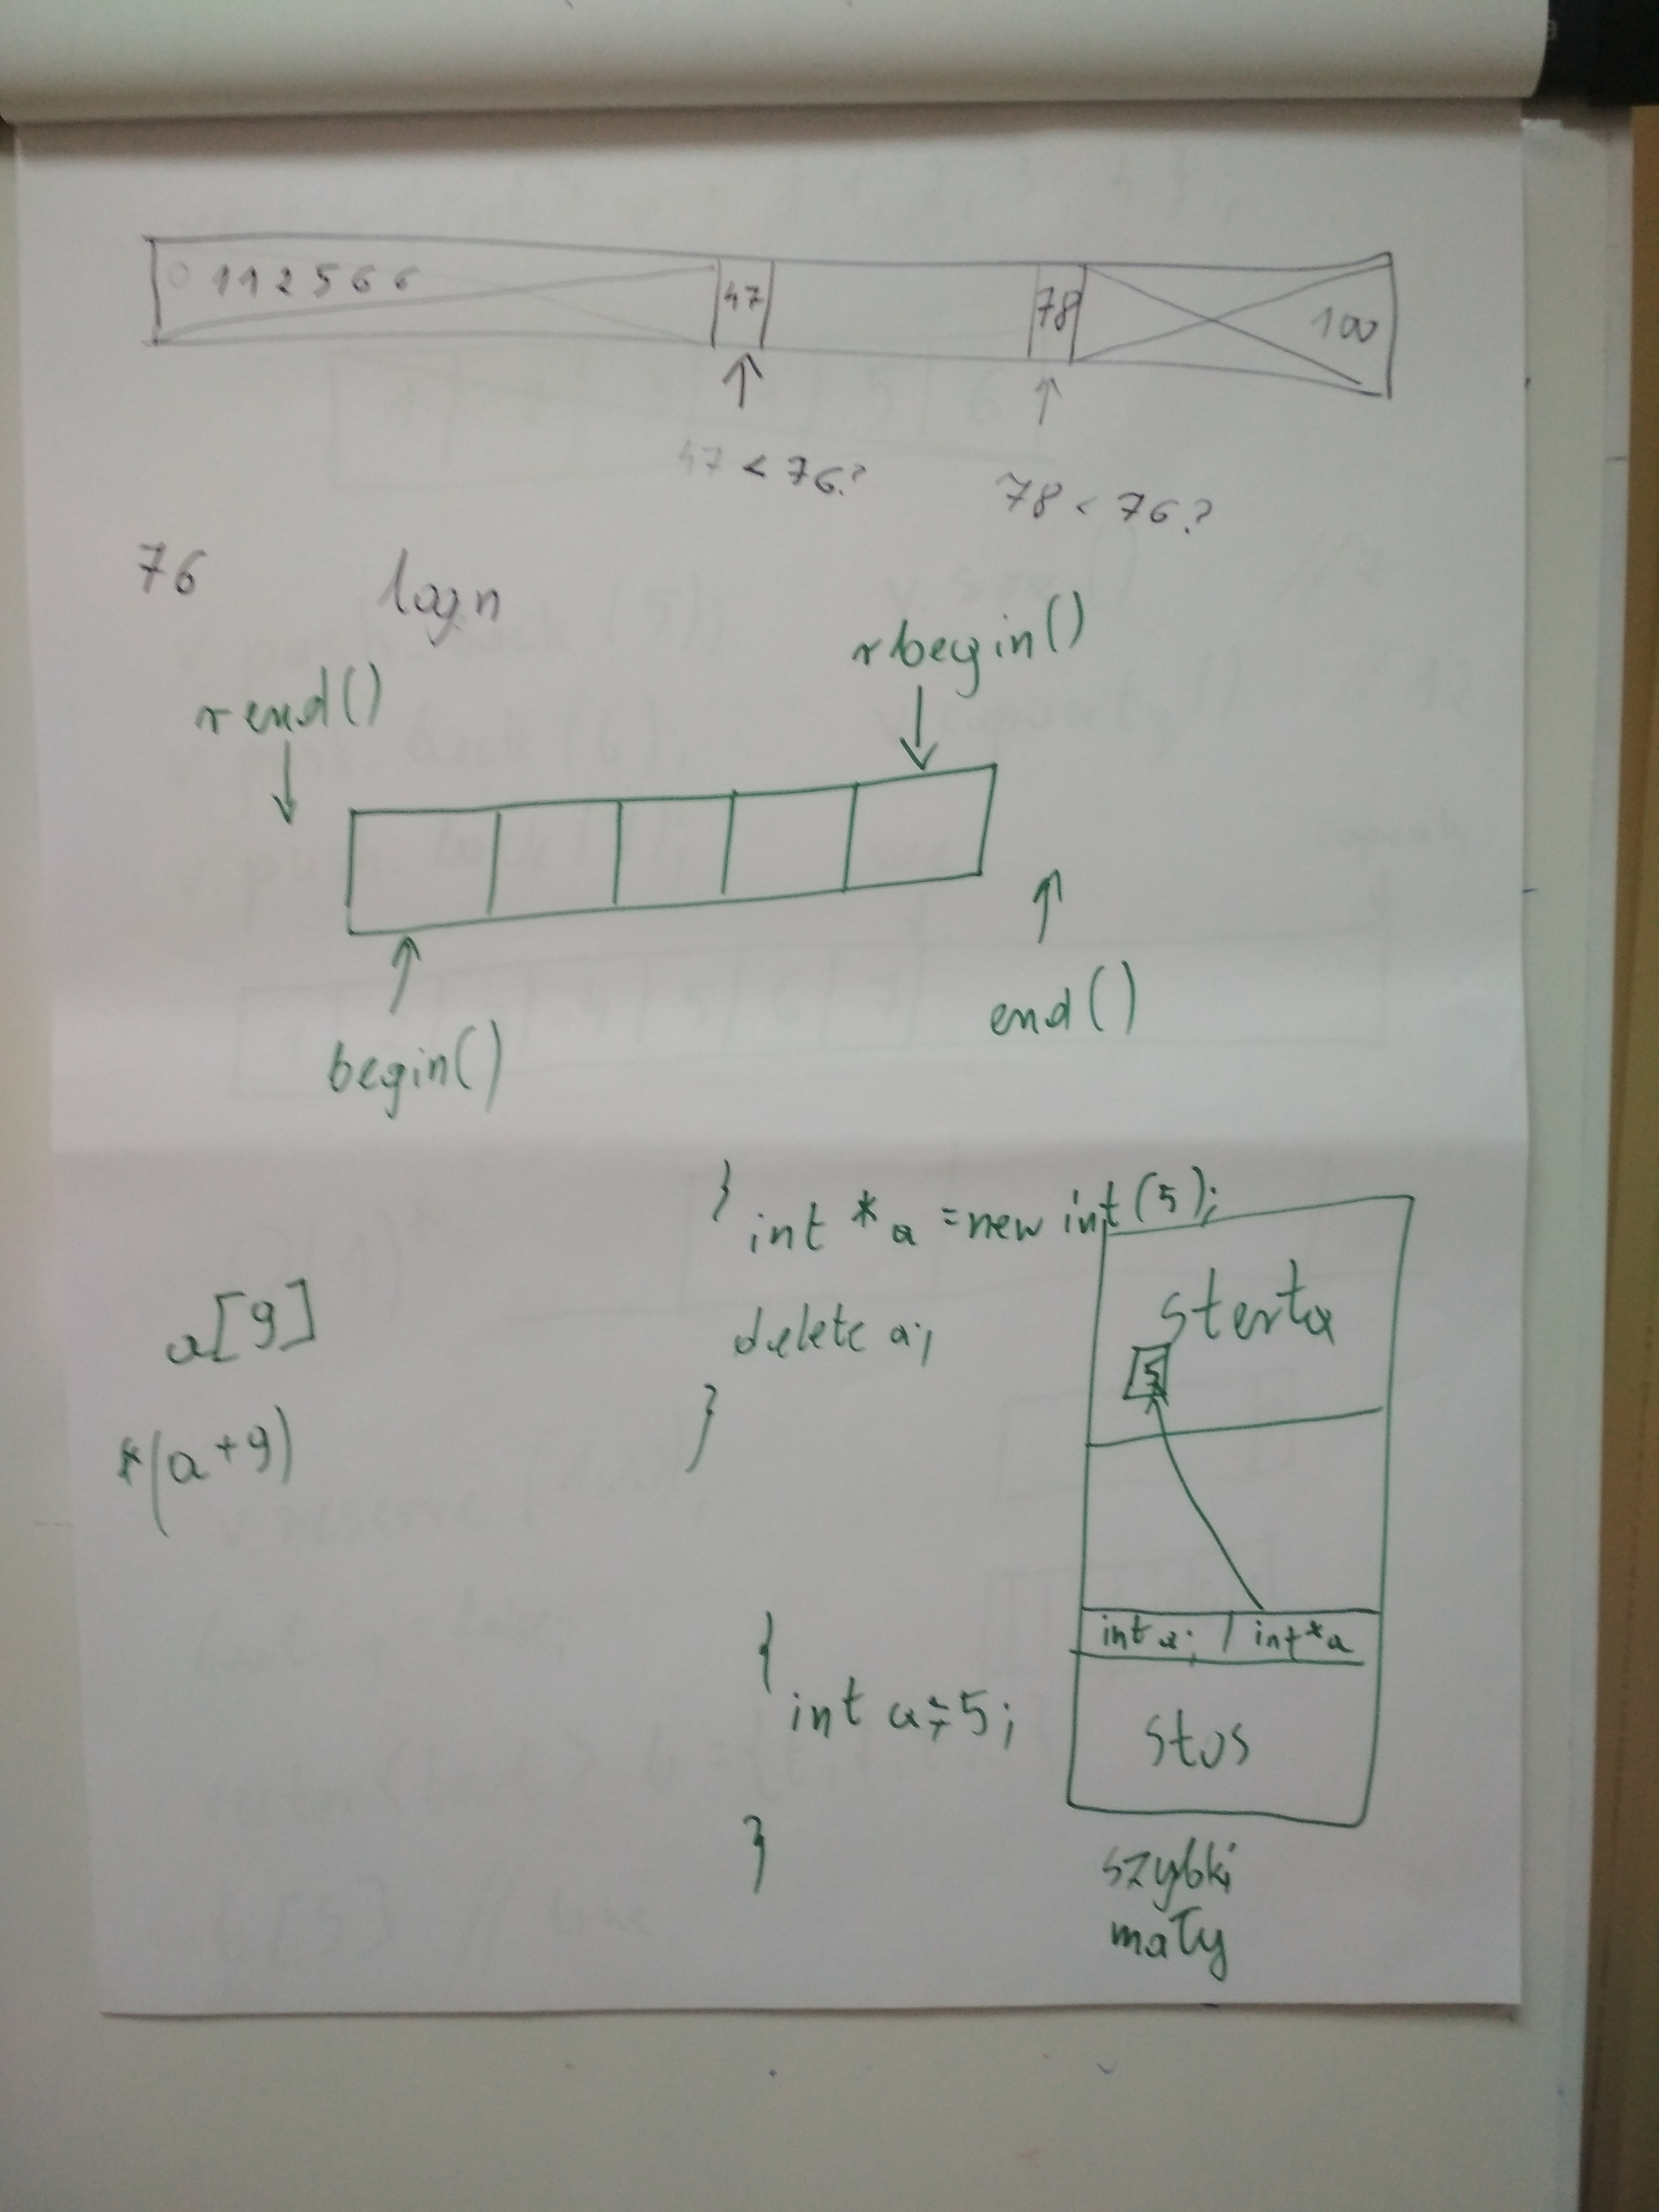 0 1 1 2 5 6 6 47 78 100
47 < 76? 78 < 76?
76 log n
rend() rbegin()
begin() end()
} int * a = new int (5);
delete a;
}
a[9]
*(a+9)
sterta
5
int a; int *a
stos
{
int a = 5;
}
szybki
mały